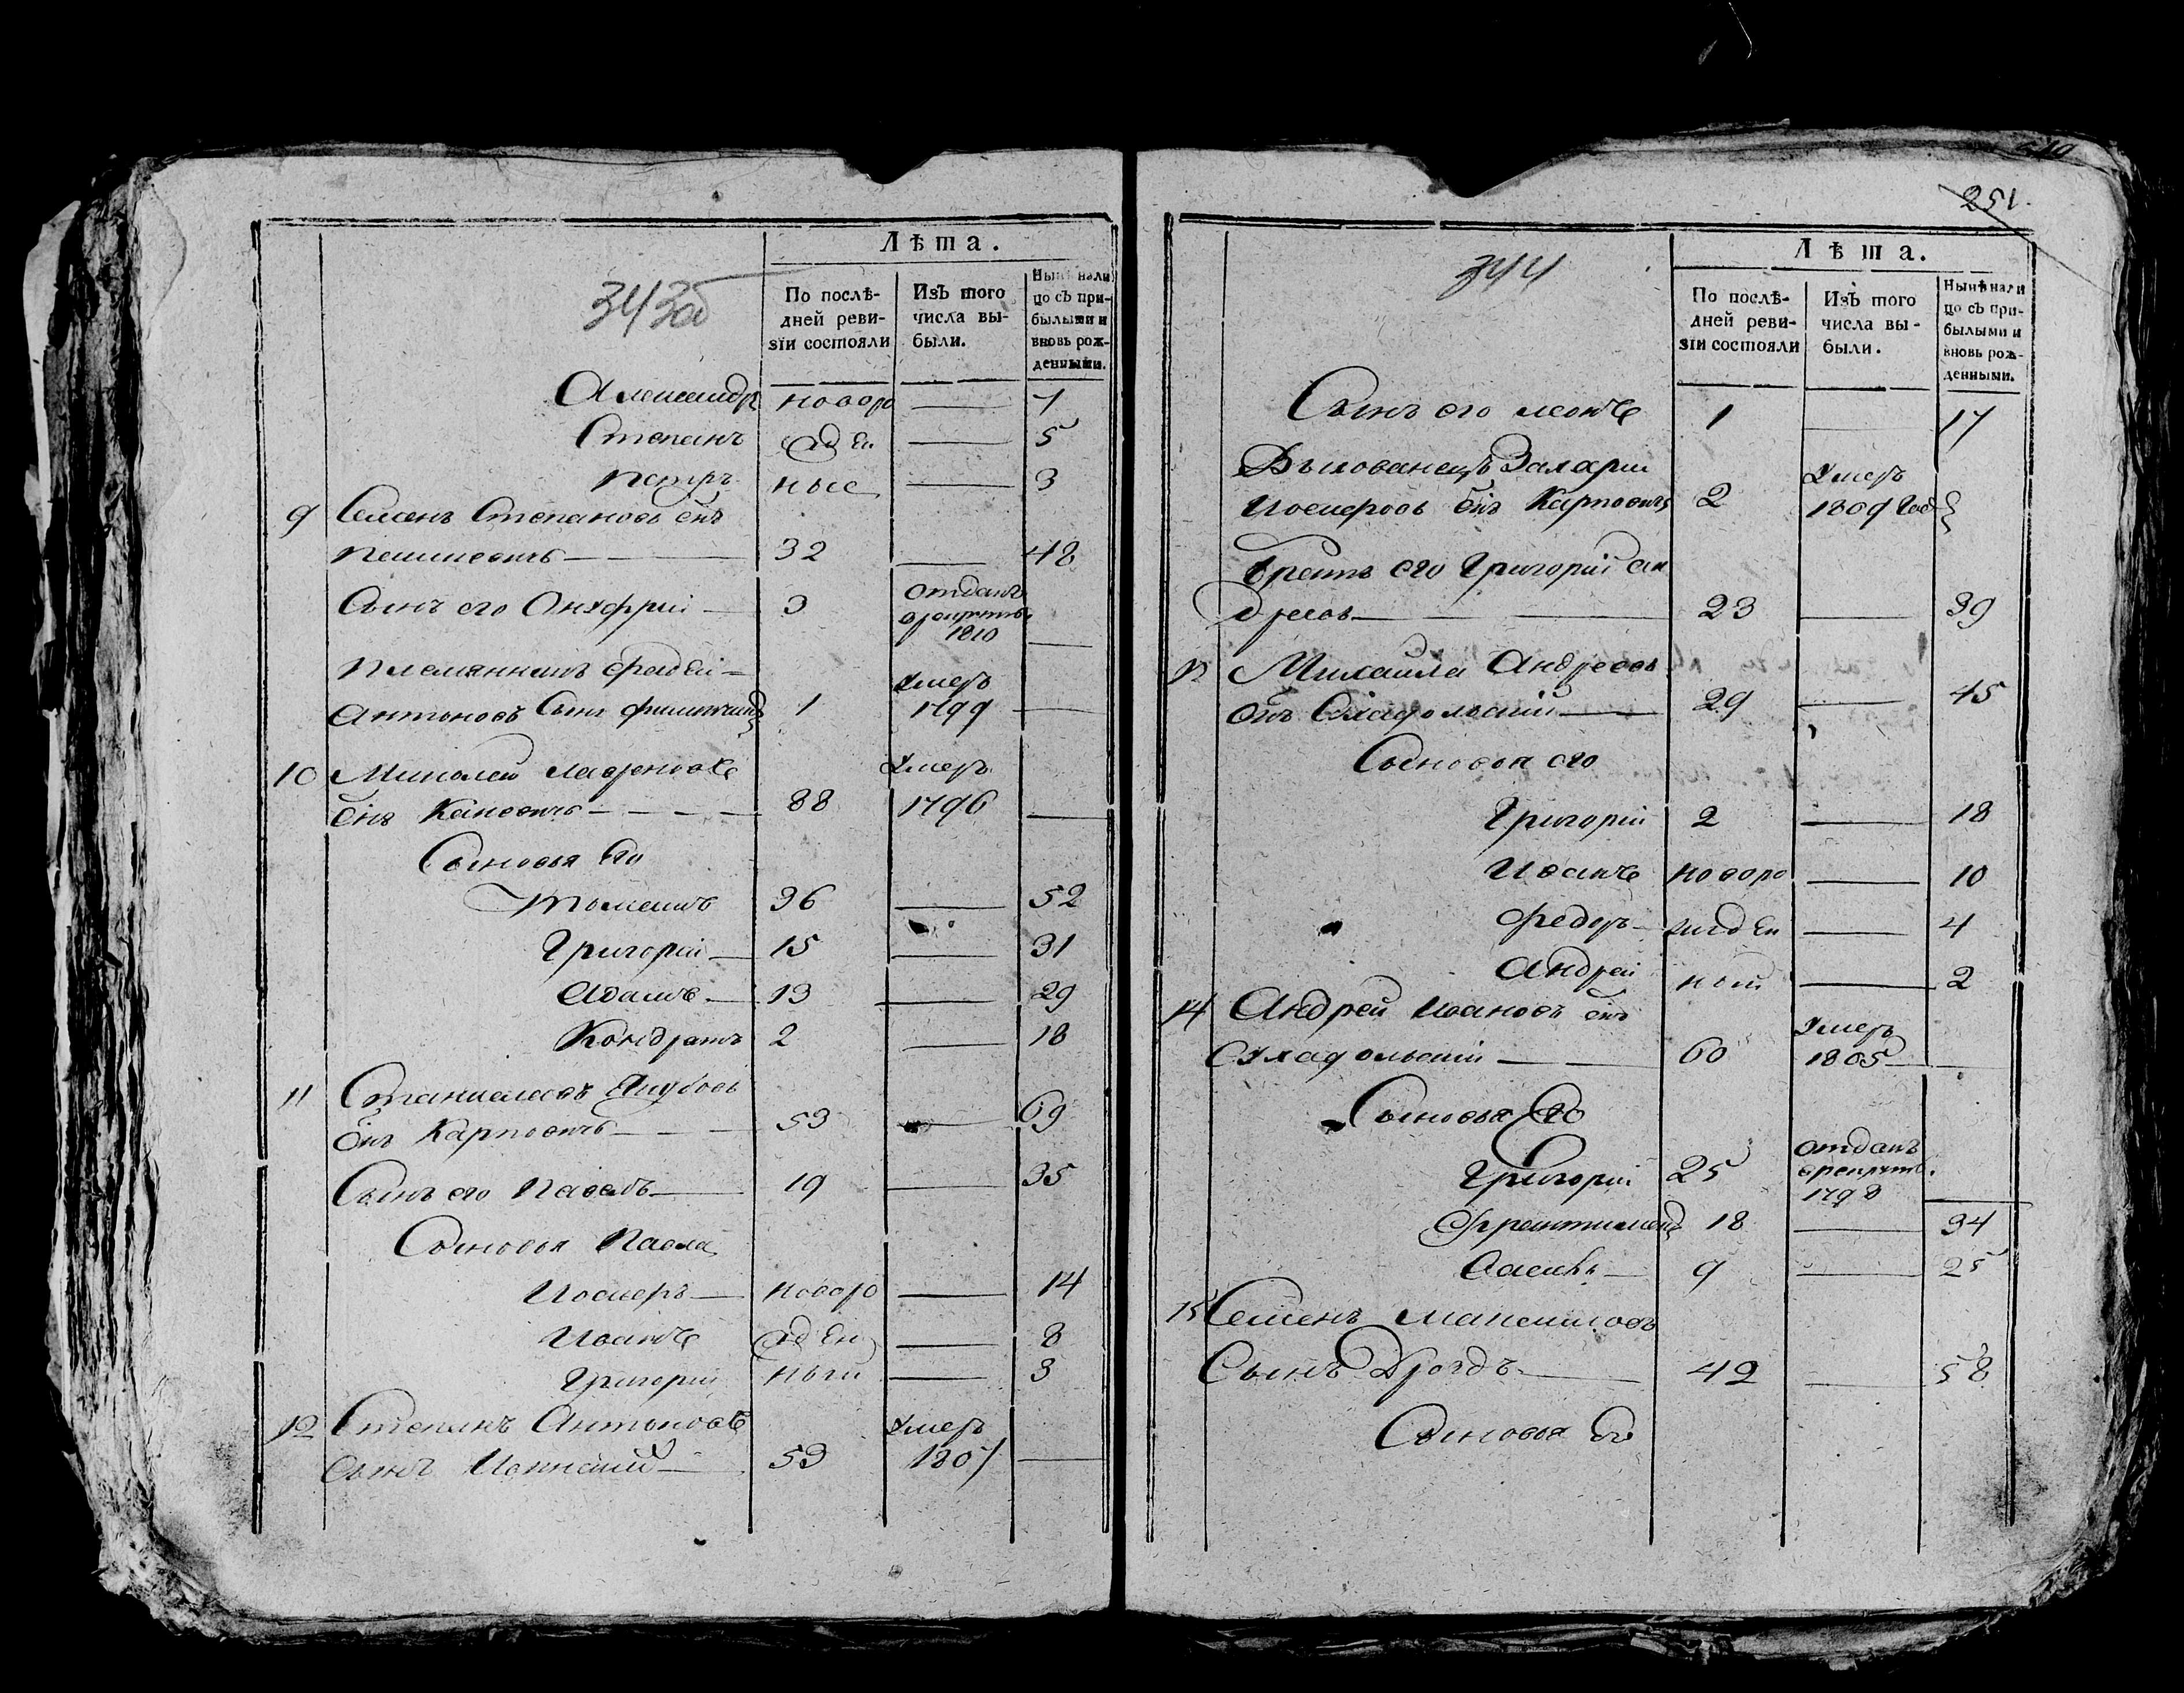 343об
Лѣта.
По послѣ-
дней реви-
зіи состояли
Изъ того
числа вы-
были.
Нынѣ нали
цо съ при-
былыми и
вновь рож-
денными.
Александръ новоро — 7
Степанъ жден — 5
Петръ ные — 3
9 Семенъ Степановъ снъ
32 — 48
Сынъ его Онуфрій — 3 отданъ
в рекруты
1810 —
Племянникъ Фадей —
Антоновъ Сынъ 1 умеръ
1799 —
10 Николай Лавреновъ умеръ
снъ — 88 1796 —
Сыновья Его
Томашъ 36 — 52
Григорій — 15 — 31
Адамъ — 13 — 29
Кондратъ 2 — 18
11 Станиславъ Якубовъ
снъ Карповичъ — 53 — 69
Сынъ его Павелъ — 19 — 35
Сыновья Павла
Иосифъ — новоро — 14
Иванъ жден — 8
Григорій ныи — 3
12 Степанъ Антоновъ умеръ
сынъ — 53 1807 —
251.
344
Лѣта.
По послѣ-
дней реви-
зіи состояли
Изъ того
числа вы-
были.
Нынѣ нали
цо съ при-
былыми и
вновь рож-
денными.
Сынъ его Леонъ 1 — 17
Выхованецъ Захарій умеръ
Иосифовъ снъ Карповичъ 2 1809 Год
Братъ его Григорій Ан
дреевъ — 23 — 39
13 Михайла Андреевъ
снъ — 29 — 45
Сыновья его
Григорій 2 — 18
Иванъ новоро — 10
Федоръ — жден — 4
Андрей ный — 2
14 Андрей Ивановъ снъ умеръ
— 60 1805 —
Сыновья Его
Григорій 25 отданъ
в рекруты.
1798 —
18 — 34
9 — 25
15 Семенъ Максимовъ
Сынъ Дроздъ — 42 — 58
Сыновья Его